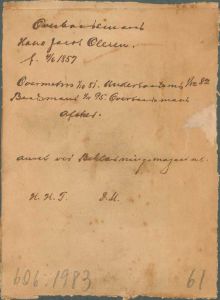 Overbaadsmand
Hans Jacob Olsen.
f. 1/6 1857
Overmatros 1/10 81. Underbaadsmd 1/12 82
Baadsmand 1/10 95. Overbaadsmand
Afsked.
ved Beklædningsmagasinet.
H. H. T. J. M.
606. 1983 61